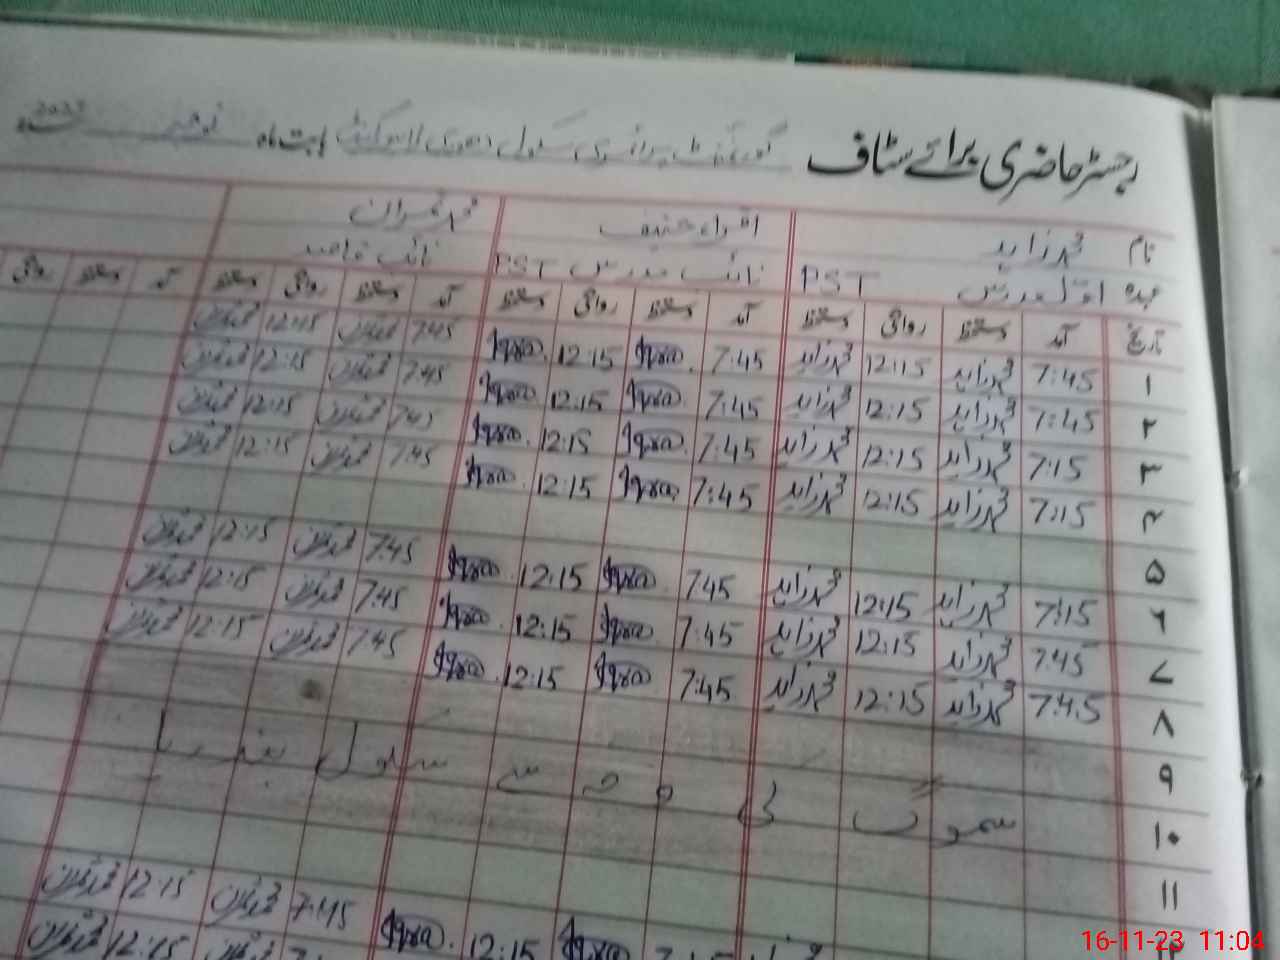 رجسٹر حاضری برائے سٹاف گورنمنٹ پرائمری سکول بابت ماہ نومبر 2023
نام محمد زاہد اقراء حنیف محمد عمران
عہدہ اول مدرس PST نائب مدرس PST نائب قاصد
تاریخ آمد دستخط روانگی دستخط آمد دستخط روانگی دستخط آمد دستخط روانگی دستخط آمد دستخط روانگی
۱ 7:45 محمد زاہد 12:15 محمد زاہد 7:45 Iqra 12:15 Iqra 7:45 محمد عمران 12:15 محمد عمران
۲ 7:45 محمد زاہد 12:15 محمد زاہد 7:45 Iqra 12:15 Iqra 7:45 محمد عمران 12:15 محمد عمران
۳ 7:15 محمد زاہد 12:15 محمد زاہد 7:45 Iqra 12:15 Iqra 7:45 محمد عمران 12:15 محمد عمران
۴ 7:15 محمد زاہد 12:15 محمد زاہد 7:45 Iqra 12:15 Iqra 7:45 محمد عمران 12:15 محمد عمران
۵
۶ 7:15 محمد زاہد 12:15 محمد زاہد 7:45 Iqra 12:15 Iqra 7:45 محمد عمران 12:15 محمد عمران
۷ 7:45 محمد زاہد 12:15 محمد زاہد 7:45 Iqra 12:15 Iqra 7:45 محمد عمران 12:15 محمد عمران
۸ 7:45 محمد زاہد 12:15 محمد زاہد 7:45 Iqra 12:15 Iqra 7:45 محمد عمران 12:15 محمد عمران
۹
۱۰ سموگ کی وجہ سے سکول بند رہا
۱۱
7:45 محمد عمران 12:15 محمد عمران
12:15 Iqra 12:15 محمد عمران
16-11-23 11:04